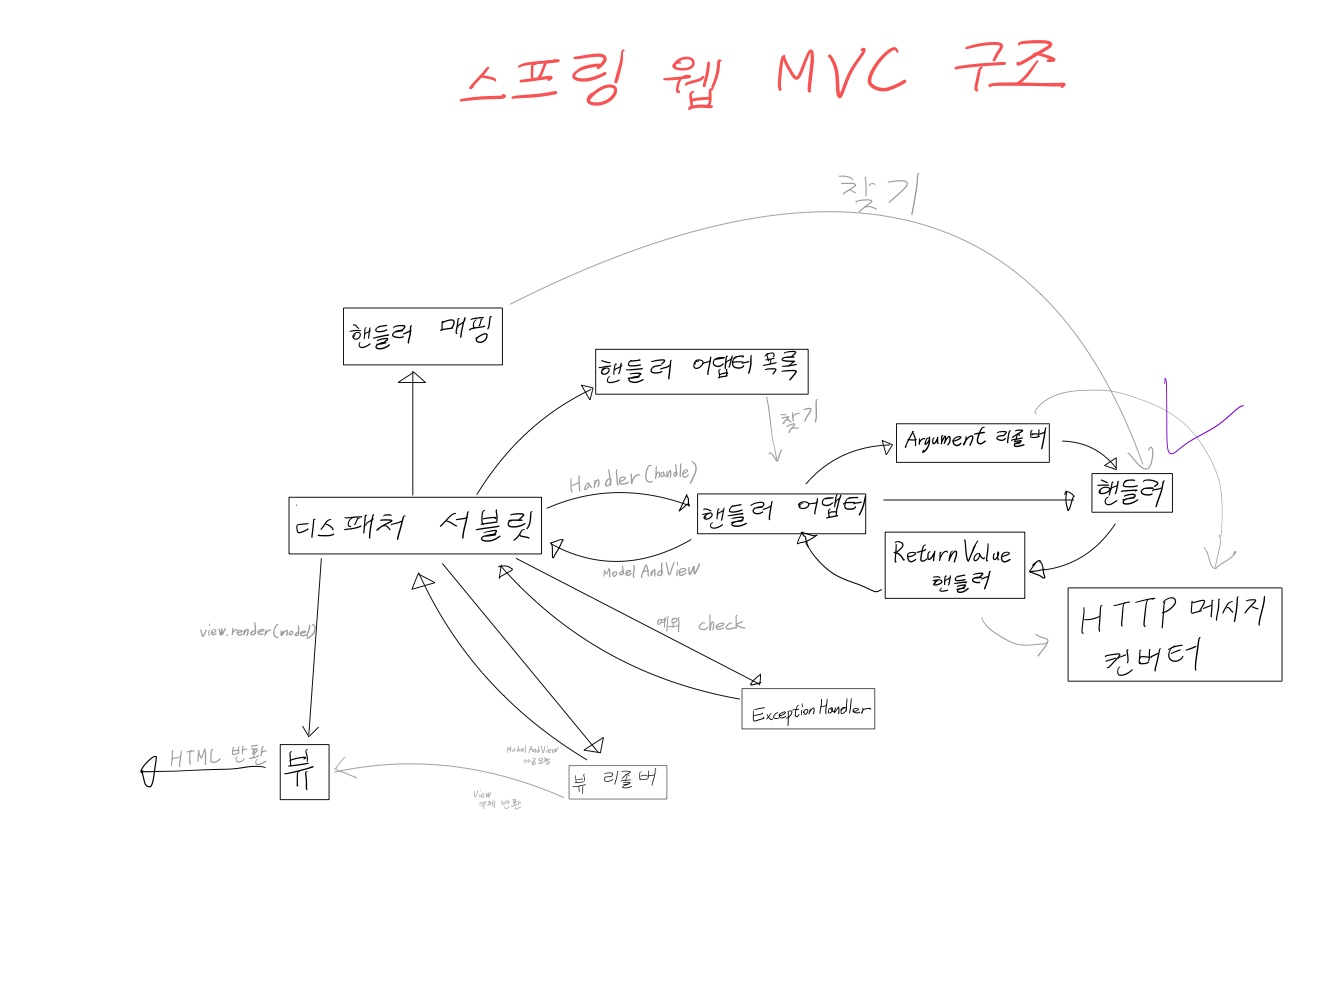 스프링 웹 MVC 구조
찾기
핸들러 매핑
핸들러 어댑터 목록
찾기
Argument 리졸버
Handler(handle)
핸들러
디스패처 서블릿
핸들러 어댑터
ModelAndView
ReturnValue
핸들러
HTTP 메시지
컨버터
view.render(model)
예외 check
ExceptionHandler
HTML 반환
뷰
ModelAndView
뷰 리졸버
View
객체 반환